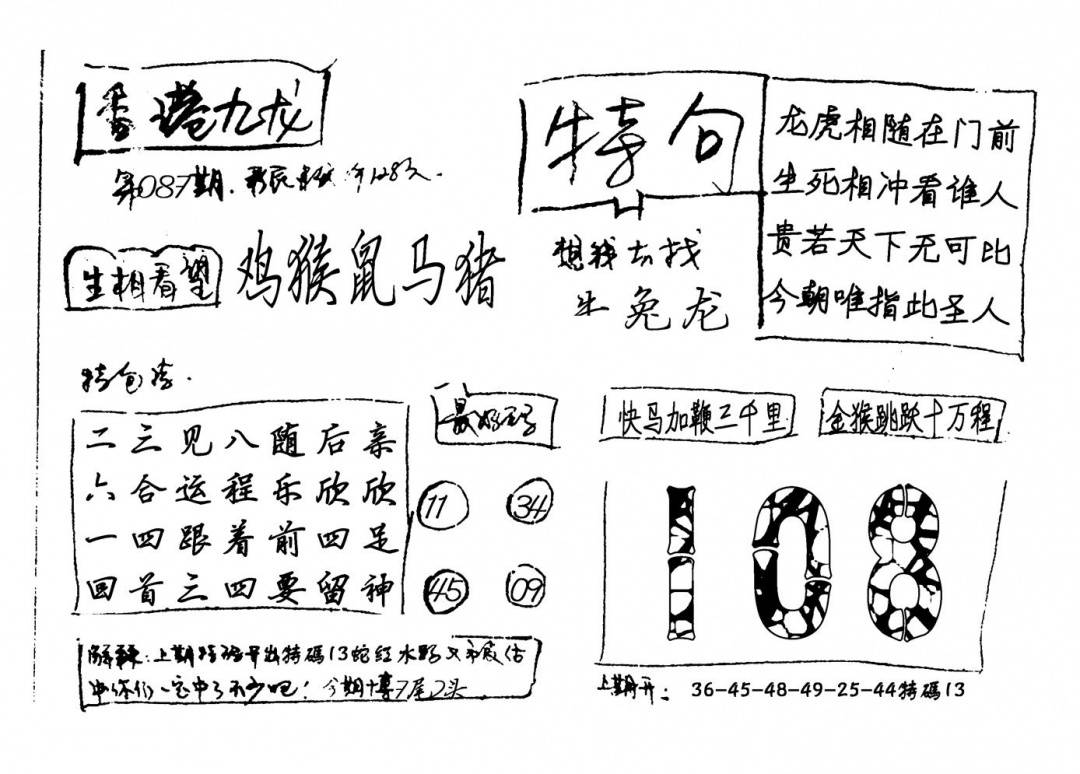 香港九龙
第087期.
生相看望
鸡猴鼠马猪
特句
想我去找
牛兔龙
龙虎相随在门前
生死相冲看谁人
贵若天下无可比
今朝唯指此圣人
特包
二三见八随后亲
六合运程乐欣欣
一四跟着前四足
回首三四要留神
最好
11 34
45 09
快马加鞭三千里
金猴跳跃十万程
108
解 : 上期特码开出特碼13蛇红水野又
中你们一定中了不少吧! 今期博7尾2头
上期开: 36-45-48-49-25-44特碼13